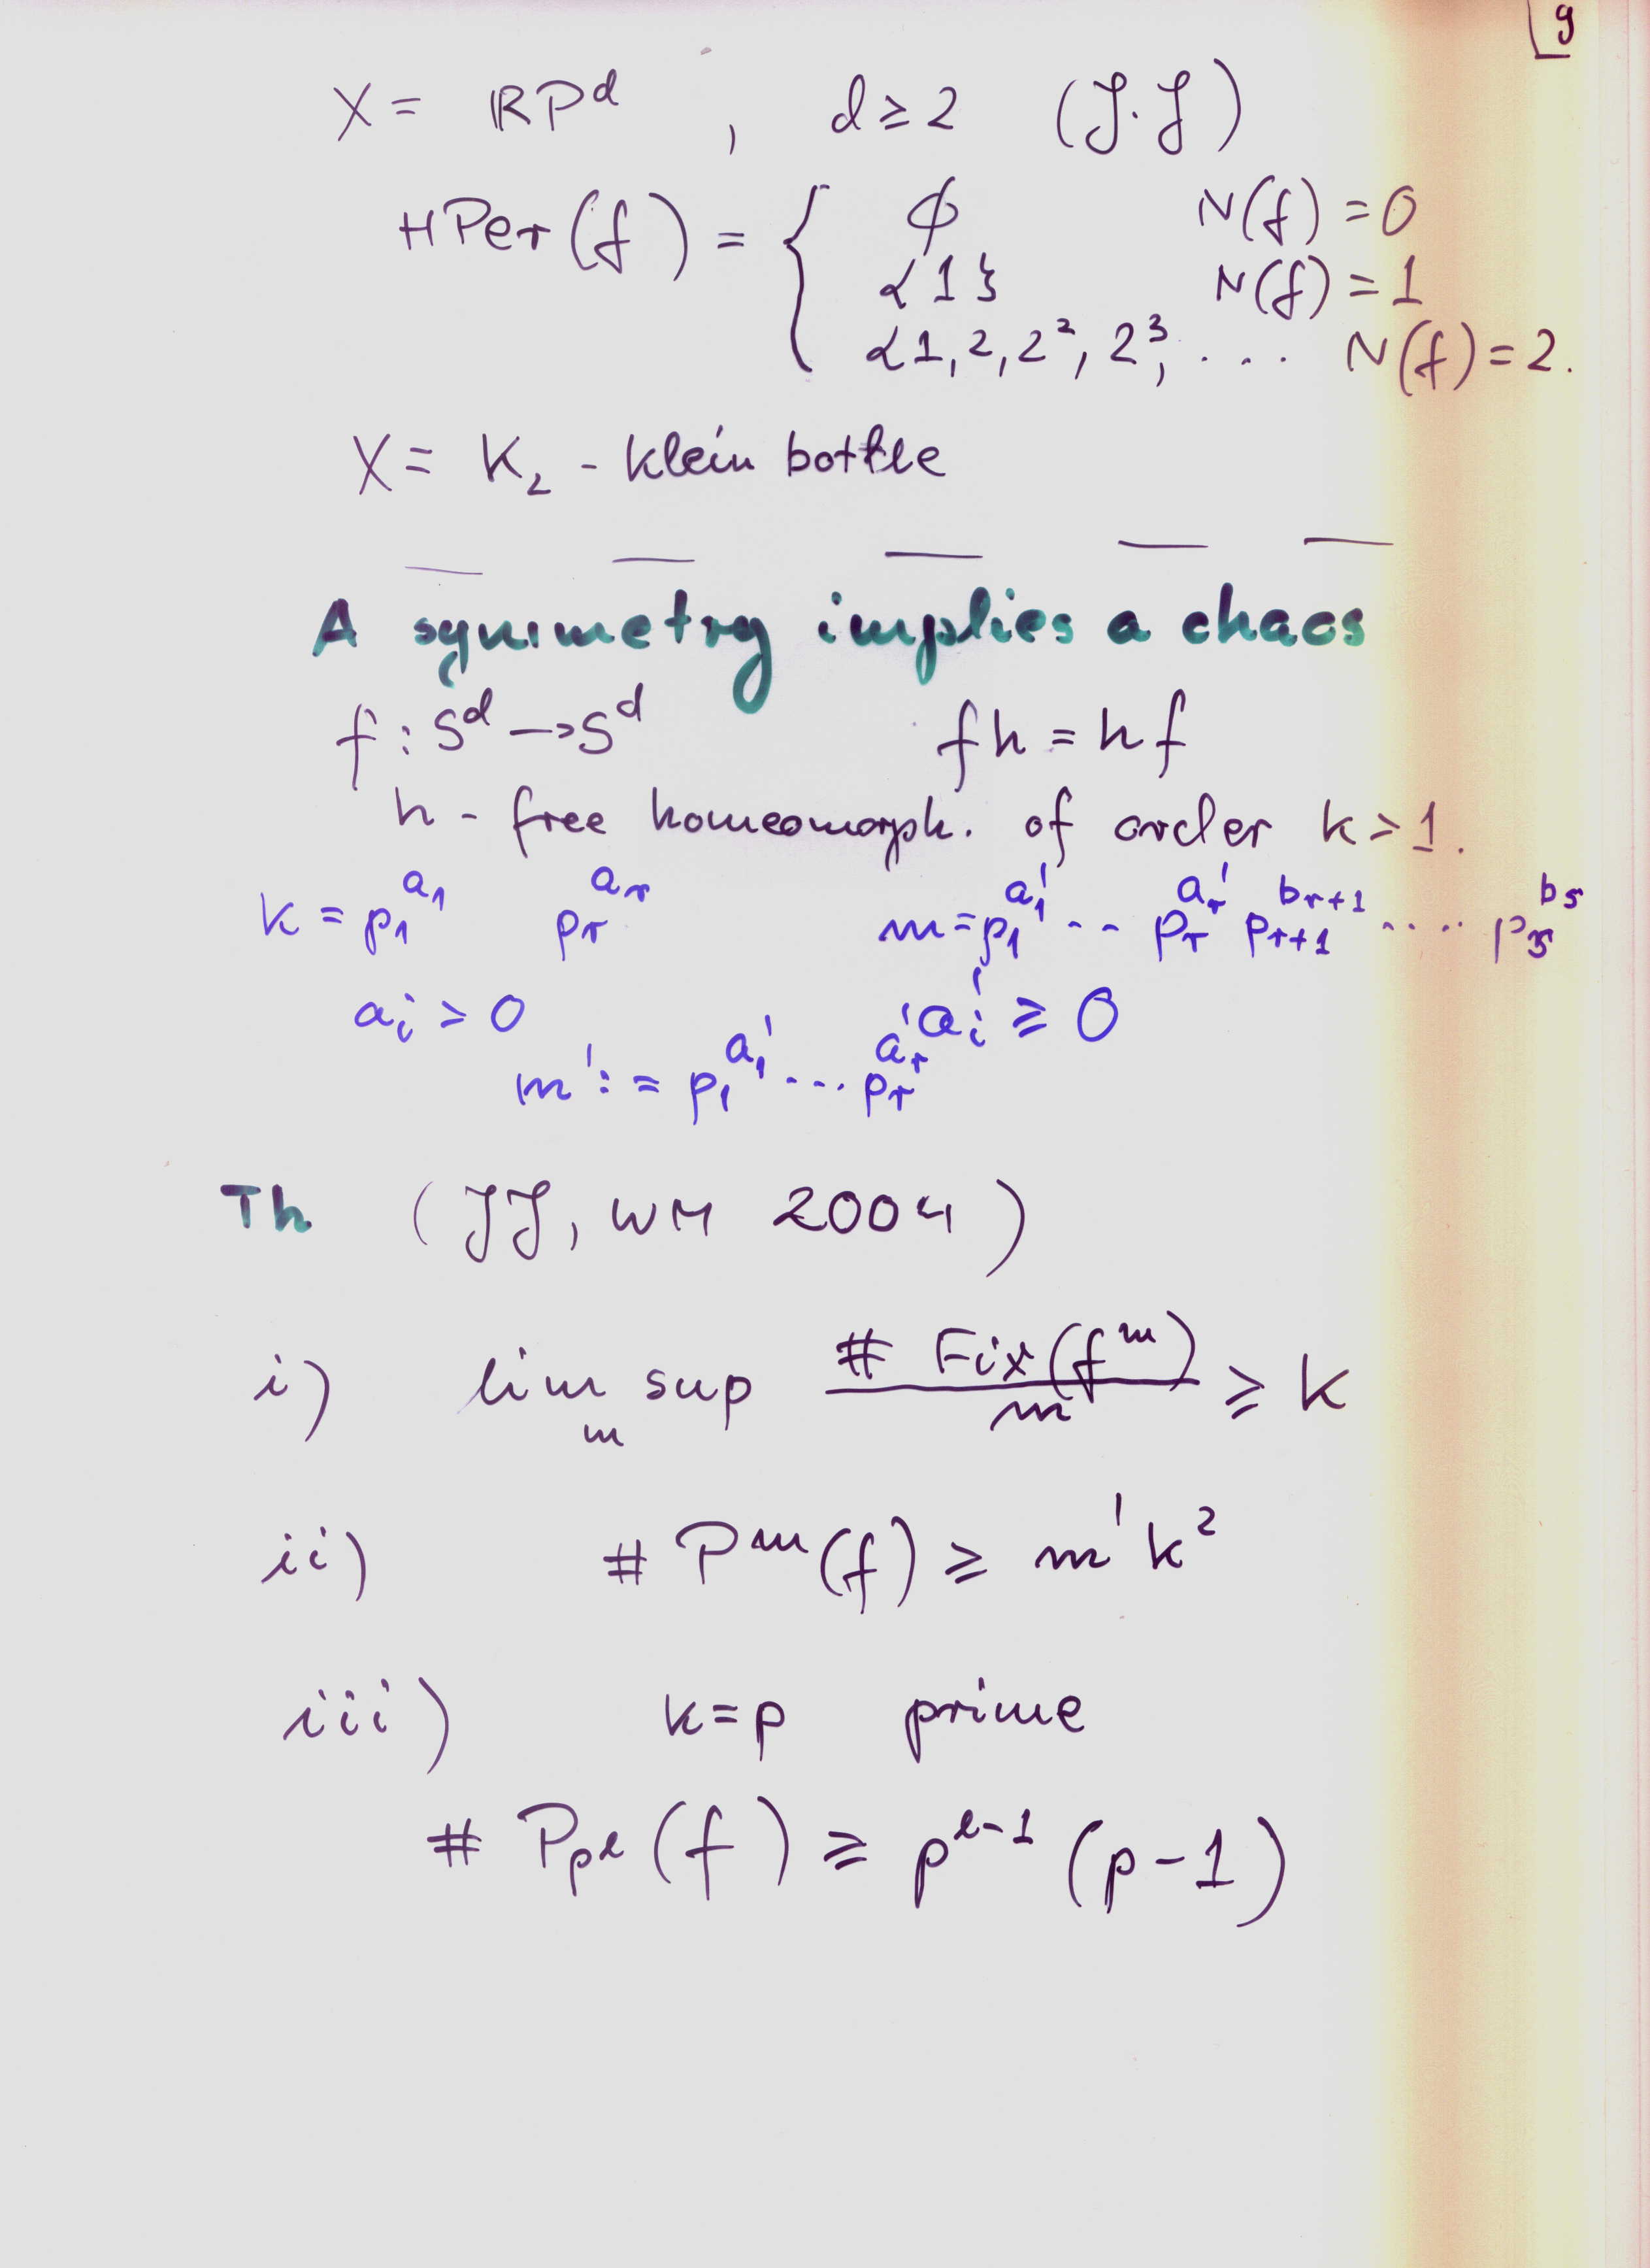 9
X = RP^d , d ≥ 2 (J.J)
HPer(f) = { ∅ N(f) = 0
{1} N(f) = 1
{1, 2, 2², 2³, ... N(f) = 2.
X = K₂ - Klein bottle
A symmetry implies a chaos
f : S^d → S^d fh = hf
h - free homeomorph. of order k > 1.
k = p₁^{a₁} p_r^{a_r} m = p₁^{a₁'} ·· p_r^{a_r'} p_{r+1}^{b_{r+1}} ···· p_s^{b_s}
a_i > 0 a_i' ≥ 0
m' := p₁^{a₁'} ... p_r^{a_r'}
Th (JJ, WM 2004)
i) lim sup_m # Fix(f^m) / m ≥ k
ii) # P^m(f) ≥ m' k²
iii) k = p prime
# P_{p^l}(f) ≥ p^{l-1} (p-1)